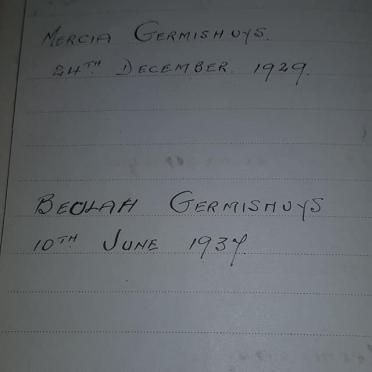 MERCIA GERMISHUYS.
24TH DECEMBER. 1929.
BEULAH GERMISHUYS
10TH JUNE 1937